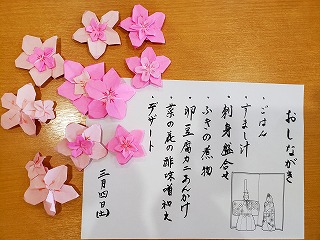 おしながき
・ごはん
・すまし汁
・刺身盛合せ
・ふきの煮物
・卵豆腐カニあんかけ
・菜の花の酢味噌和え
・デザート
三月四日(土)